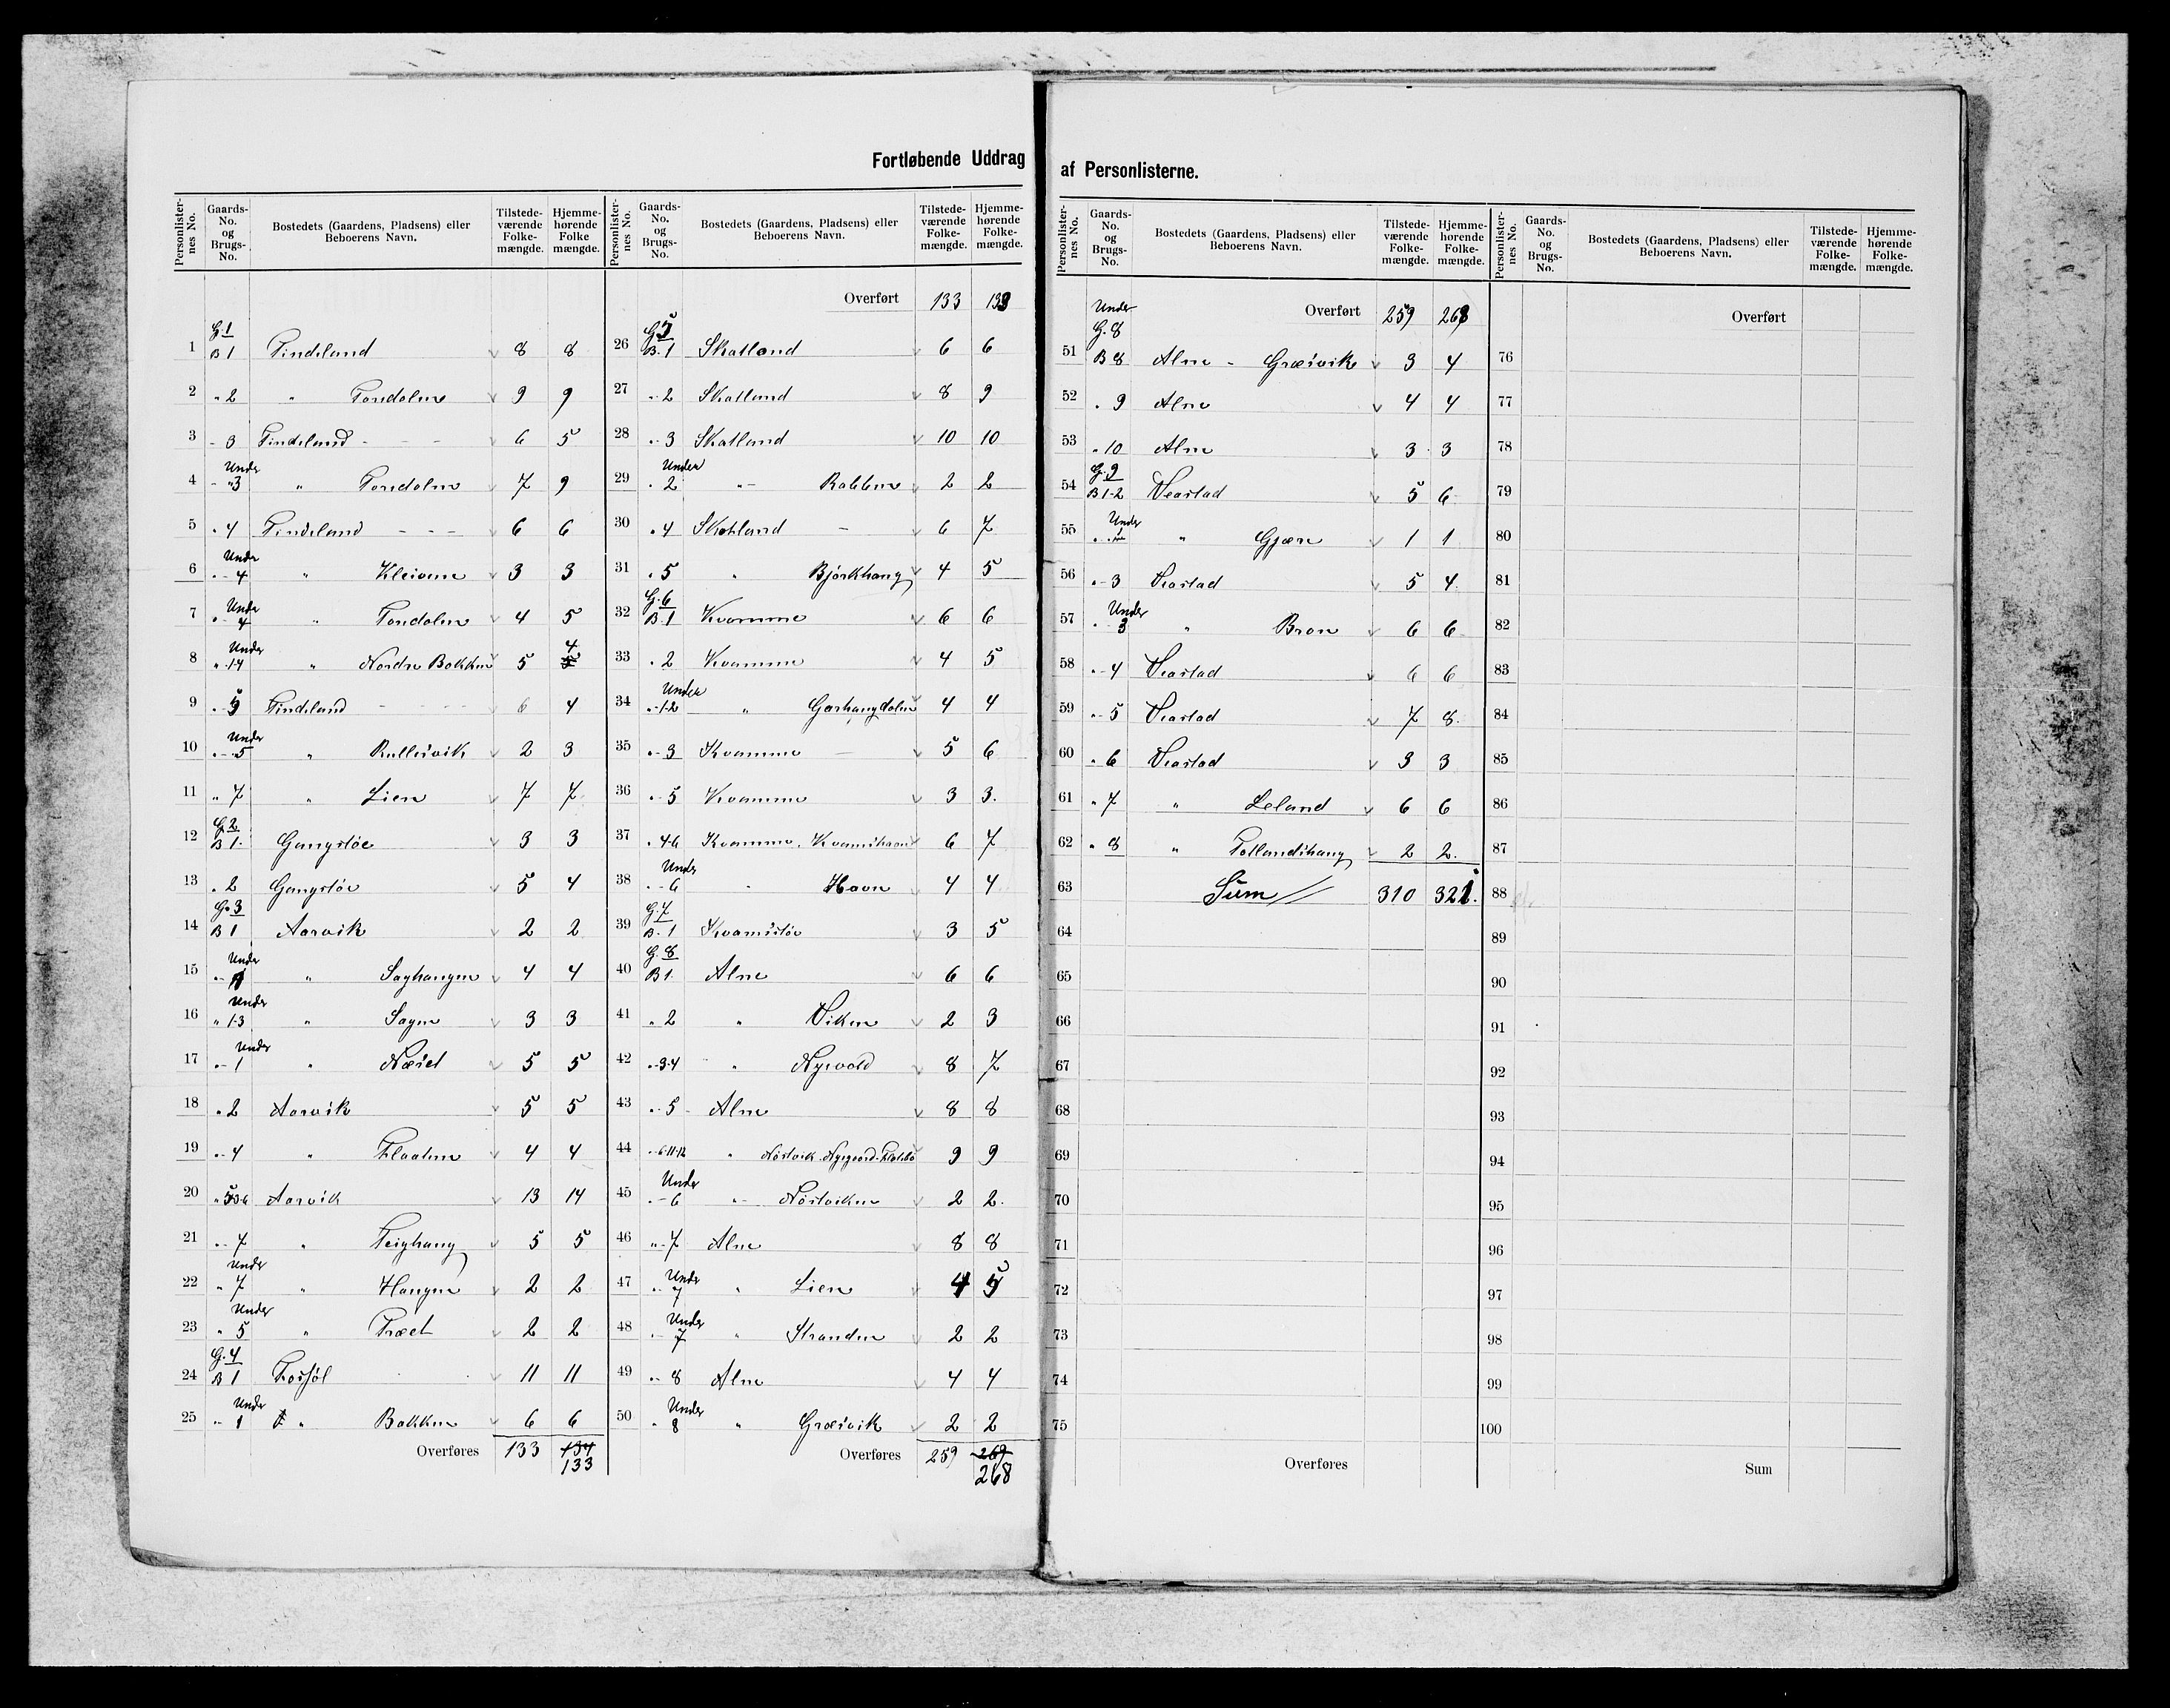 Fortløbende Uddrag af Personlisterne.
Personlister-nes No. Gaards-No. og Brugs-No. Bostedets (Gaardens, Pladsens) eller Beboerens Navn. Tilstede-værende Folke-mængde. Hjemme-hørende Folke mængde.
G. 1
1 B 1 Tindeland 8 8
2 " 2 " Tondalen 9 9
3 " 3 Tindeland - - - 6 5
4 Under " 3 " Tondalen 7 9
5 " 4 Tindeland - - - 6 6
6 Under " 4 " Kleivene 3 3
7 Under " 4 " Tondalen 4 5
8 Under " 1-4 " Nordre Bakken 5 4
9 " 5 Tindeland - - - 6 4
10 Under " 5 " Rullesvik 2 3
11 " 7 " Lien 7 7
G. 2
12 B 1. Gangstøe 3 3
13 " 2 Gangstøe 5 4
G. 3
14 B 1 Aarvik 2 2
15 Under " 1 " Saghaugen 4 4
16 Under " 1-3 " Sagen 3 3
17 Under " 1 " Næset 5 5
18 " 2 Aarvik 5 5
19 " 4 " Flaaten 4 4
20 Aarvik 13 14
21 " 7 " Teighaug 5 5
22 Under " 7 " Haugen 2 2
23 Under " 5 " Træet 2 2
G. 4
24 B 1 11 11
25 Under " 1 " Bakken 6 6
Overføres 133 134
133
Personlister-nes No. Gaards-No. og Brugs-No. Bostedets (Gaardens, Pladsens) eller Beboerens Navn. Tilstede-værende Folke-mængde. Hjemme-hørende Folke-mængde.
Overført 133 133
G. 5
26 B. 1 Skatland 6 6
27 " 2 Skatland 8 9
28 " 3 Skatland 10 10
29 Under " 2 " Rabben 2 2
30 " 4 Skatland - 6 7
31 " 5 " Bjørkhaug 4 5
G. 6
32 B. 1 Kvamme 6 6
33 " 2 Kvamme 4 5
34 Under " 1-2 " Garhaugdalen 4 4
35 " 3 Kvamme - 5 6
36 " 5 Kvamme 3 3.
37 " 4-6 Kvamme, Kvamshavn 6 7
38 Under " 6 " Havn 4 4
G. 7
39 B. 1 Kvamstøe 3 5
G. 8
40 B 1. Alne 6 6
41 " 2 " Viken 2 3
42 " 3-4 " Nyevold 8 7
43 " 5 - Alne 8 8
44 " 6-11-12 " Nøstvik-Nygaard- 9 9
45 Under " 6 " Nøstviken 2 2.
46 " 7 Alne 8 8
47 Under " 7 " Lien 4 5
48 Under " 7 " Stranden 2 2
49 " 8 Alne 4 4
50 Under " 8 " Græsvik 2 2
Overføres 259 269
268
Personlister-nes No. Gaards-No. og Brugs-No. Bostedets (Gaardens, Pladsens) eller Beboerens Navn. Tilstede-værende Folke-mængde. Hjemme-hørende Folke-mængde.
Overført 259 268
Under G. 8
51 B 8 Alne - Græsvik 3 4
52 " 9 Alne 4 4
53 " 10 Alne 3 3
G. 9
54 B 1-2 Vearstad 5 6
55 Under " Gjæra 1 1
56 " 3 Vearstad 5 4
57 Under " 3 " Broen 6 6
58 " 4 Vearstad 6 6
59 " 5 Vearstad 7 8.
60 " 6 Vearstad 3 3
61 " 7 " Leland 6 6
62 " 8 " Tollandshaug 2 2.
63 Sum 310 321.
64
65
66
67
68
69
70
71
72
73
74
75
Overføres
Personlister-nes No. Gaards-No. og Brugs-No. Bostedets (Gaardens, Pladsens) eller Beboerens Navn. Tilstede-værende Folke-mængde. Hjemme-hørende Folke-mængde.
Overført
76
77
78
79
80
81
82
83
84
85
86
87
88
89
90
91
92
93
94
95
96
97
98
99
100
Sum